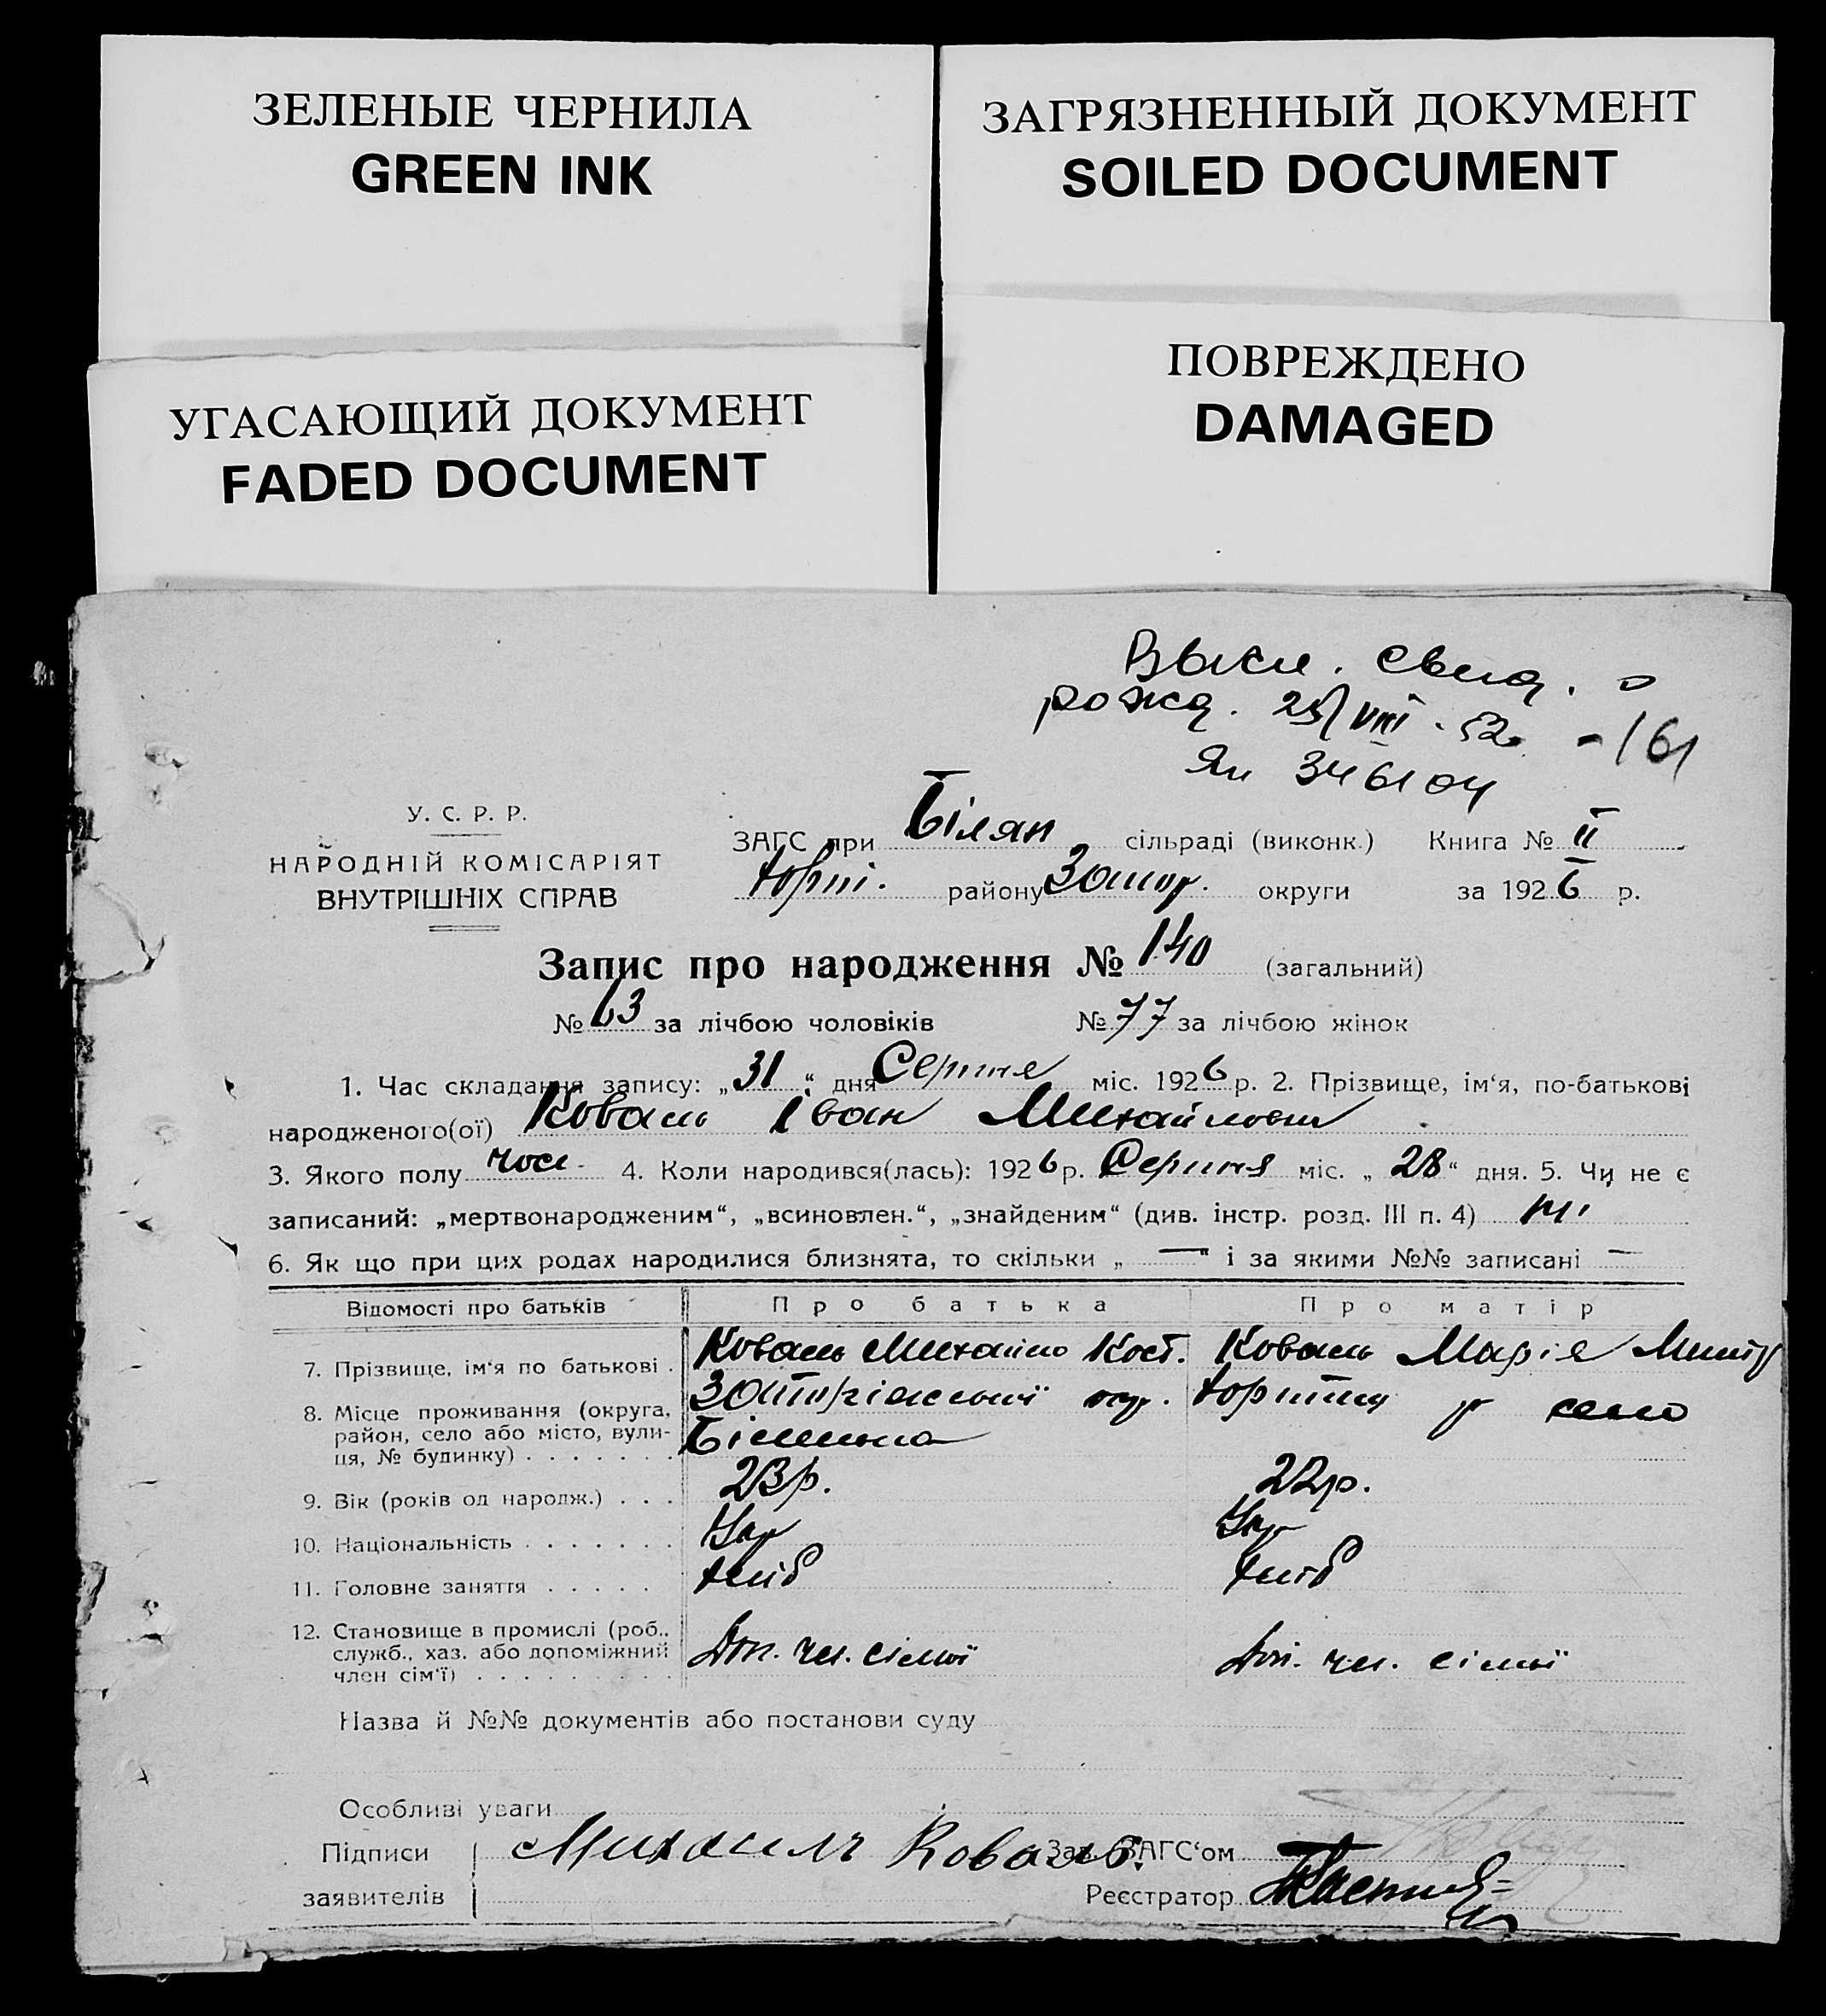 ЗЕЛЕНЫЕ ЧЕРНИЛА
GREEN INK
ЗАГРЯЗНЕННЫЙ ДОКУМЕНТ
SOILED DOCUMENT
УГАСАЮЩИЙ ДОКУМЕНТ
FADED DOCUMENT
ПОВРЕЖДЕНО
DAMAGED
свид. о
рожд. 25/VIII - 52. - 161
346104
У. С. Р. Р.
НАРОДНІЙ КОМІСАРІЯТ
ВНУТРІШНІХ СПРАВ
ЗАГС при Білян сільраді (виконк.) Книга № II
району округи за 1926 р.
Запис про народження № 140 (загальний)
№ 63 за лічбою чоловіків № 77 за лічбою жінок
1. Час складання запису: „31“ дня Серпня міс. 1926 р. 2. Прізвище, ім‘я, по-батькові
народженого(ої) Коваль Іван Михайлович
3. Якого полу чол. 4. Коли народився(лась): 1926 р. Серпня міс. „28“ дня. 5. Чи не є
записаний: „мертвонародженим“, „всиновлен.“, „знайденим“ (див. інстр. розд. III п. 4) ні
6. Як що при цих родах народилися близнята, то скільки „—“ і за якими №№ записані —
Відомості про батьків Про батька Про матір
7. Прізвище, ім‘я по батькові . Коваль Михайло Кост. Коваль Марія
8. Місце проживання (округа, район, село або місто, вулиця, № будинку) . . . . . . . окр. р село
9. Вік (років од народж.) . . . 23р. 22р.
10. Національність . . . . . . . Укр Укр
11. Головне заняття . . . . . хліб хліб
12. Становище в промислі (роб., служб., хаз. або допоміжний член сім‘ї) . . . . . . . . . Доп. чл. сімьї Доп. чл. сімьї
Назва й №№ документів або постанови суду
Особливі уваги
Підписи Михаил Коваль. Зав. ЗАГС‘ом
заявителів Реєстратор